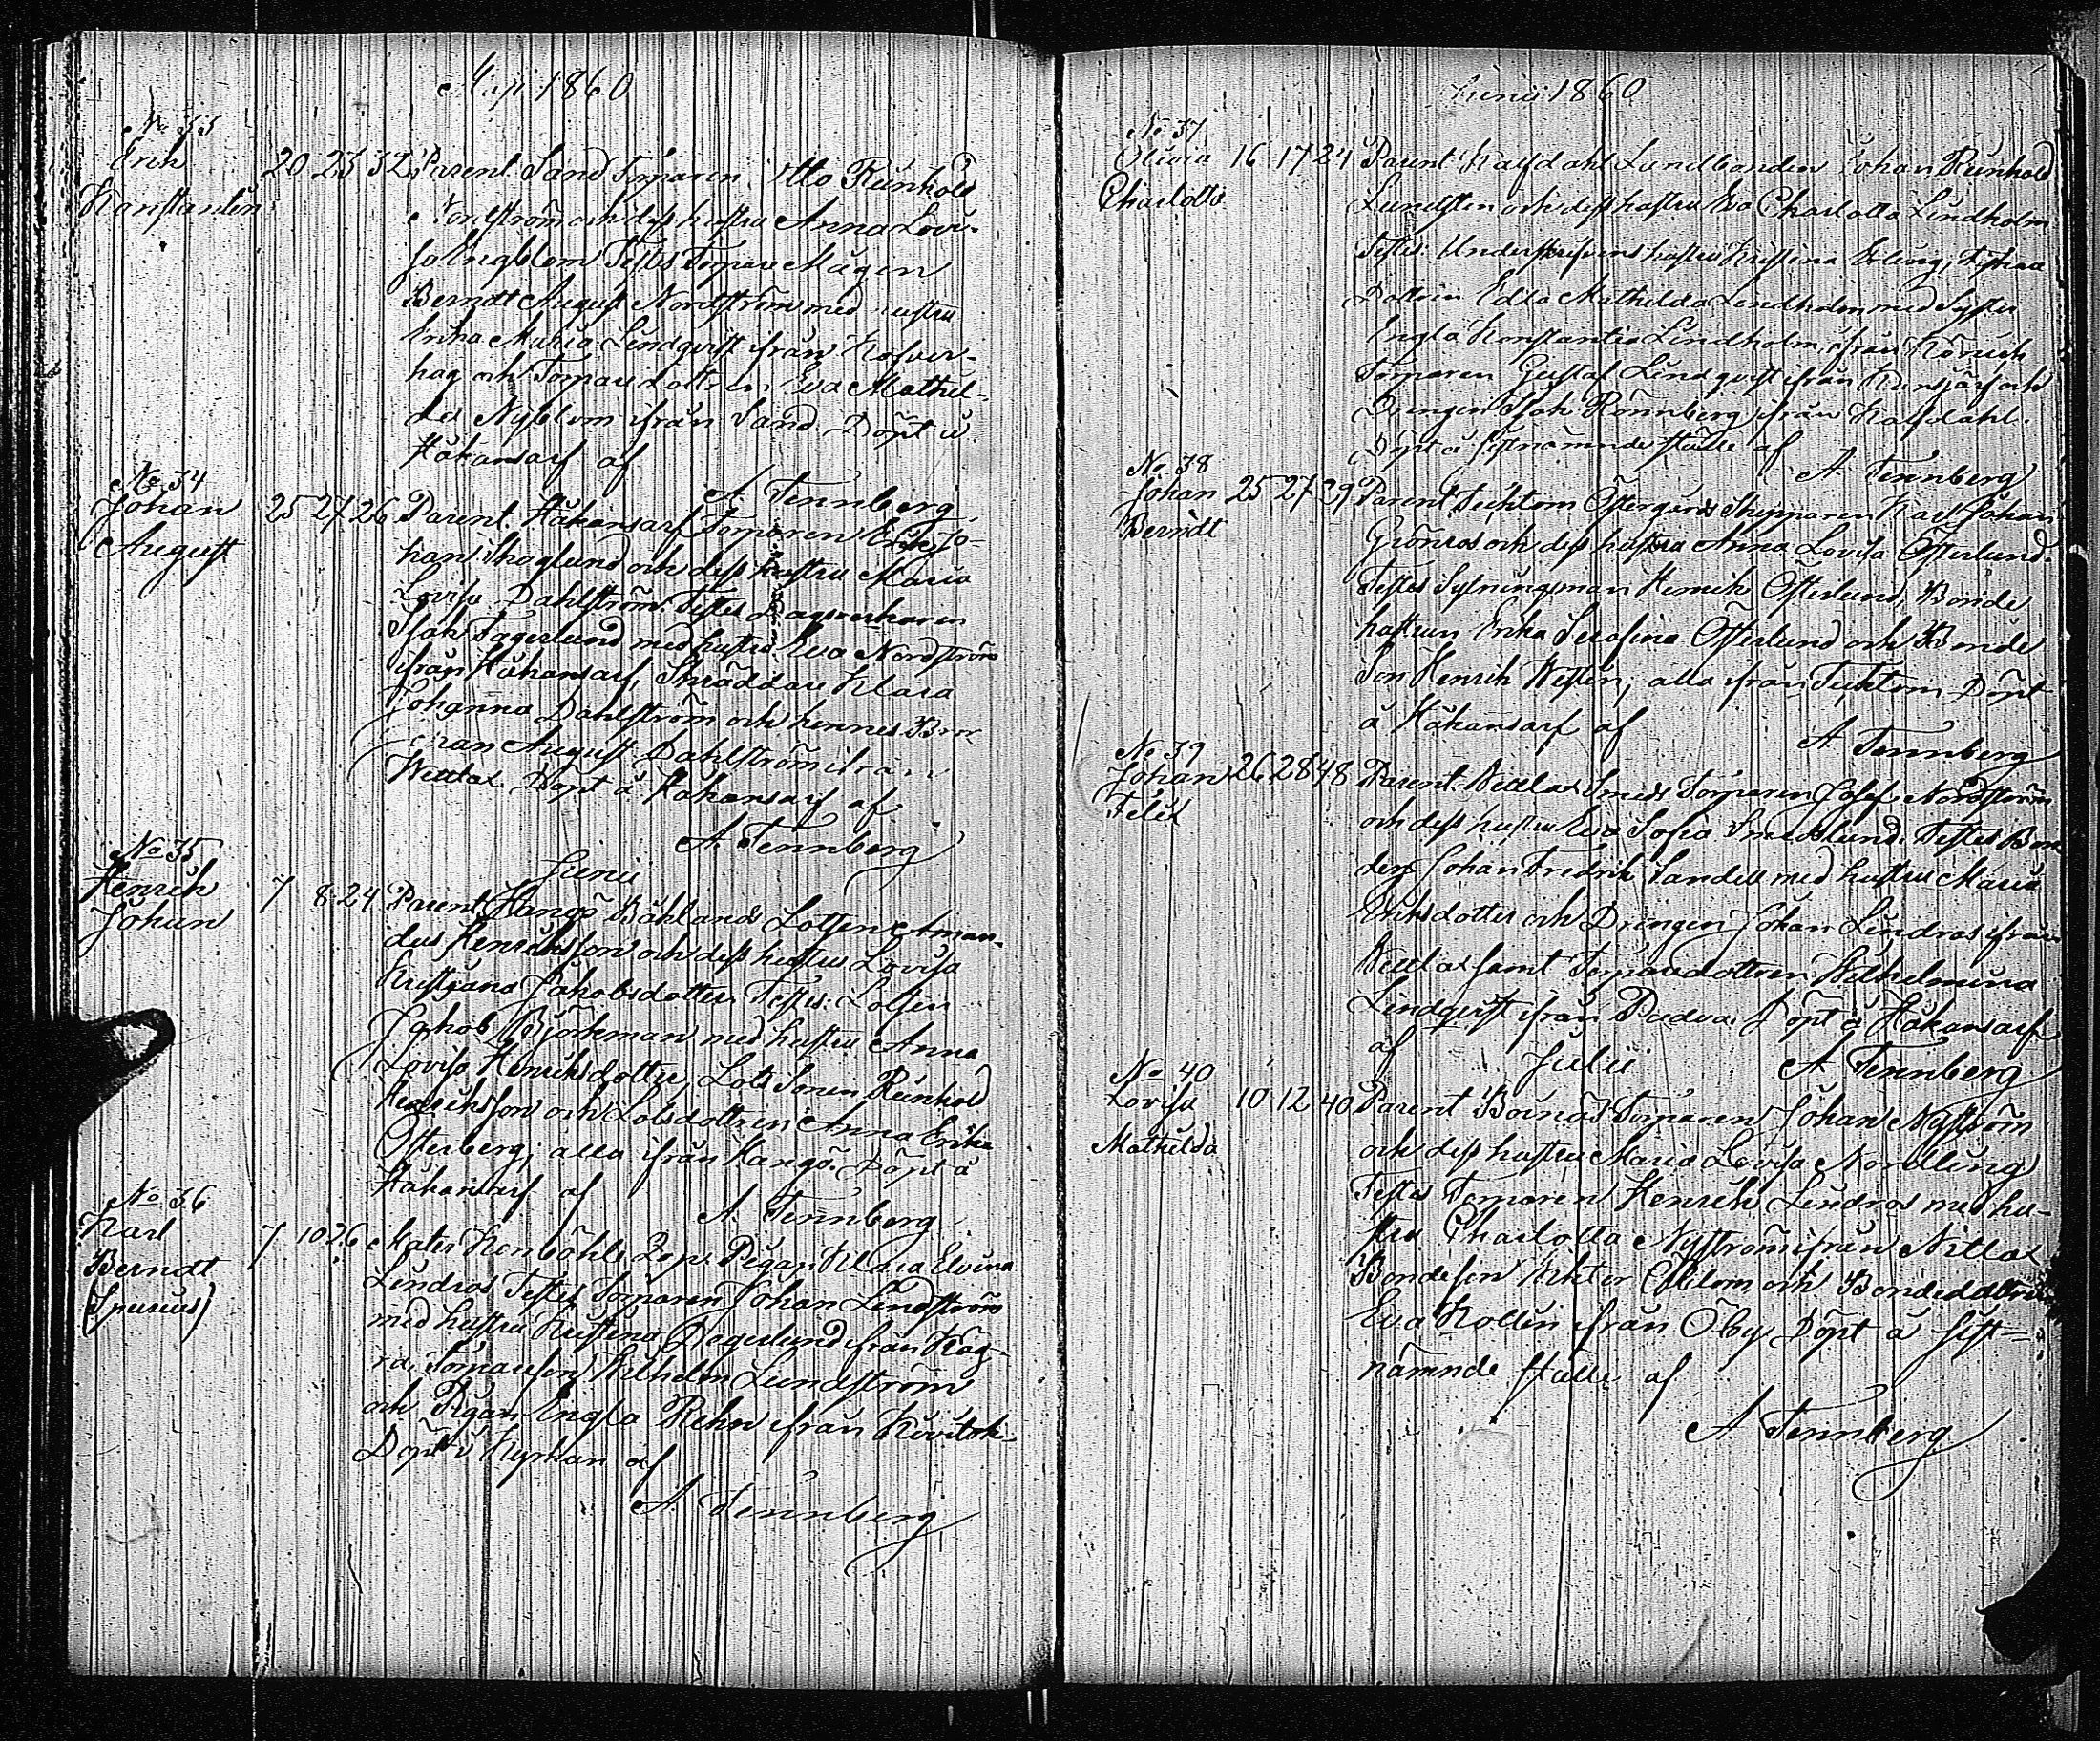 Maji 1860
No 33
Erik 20 23 32 Parent. Sand Torparen Otto Reinhold
Konstantin Nordström och dess hustru Anna Lovi-
sa Engblom Testes Torpare Mågen
Berndt August Nordström med hustru
Erika Maria Lindqvist ifrån Kofver-
hag och Torpare dottren Eva Mathil-
da Nyblom ifrån Sand. Döpt å
Håkansarf af
A. Tennberg
No 34
Johan 25 27 26 Parent. Håkansarf Torparen Erik Jo-
August han Skoglund och dess hustru Maria
Lovisa Dahlström. Testes
Isak Fagerlund med hustru Eva Nordström
ifrån Håkansarf, Skräddare Klara
Johanna Dahlström och hennes Bror
August Dahlström ifrån
Wettlax. Döpt å Håkansarf af
A. Tennberg
Junii
No 35
Henrik 7 8 24 Parent. Hangö Båklands Lotsen Aman-
Johan dus Henriksson och dess hustru Lovisa
Kristjana Jakobsdotter Testes: Lotsen
Jakob Björkman med hustru Anna
Lovisa Henriksdotter, Lots Sonen Reinhold
Henriksson och Lotsdottren Anna Erika
Österberg; alla ifrån Hangö. Döpt å
Håkansarf af
A. Tennberg
No 36
Karl 7 10 26 Mater Pigan Klara Elvina
Berndt Lindros Testes Torparen Johan Lindström
(Spurius) med hustru Kristina Degerlund ifrån Kåg-
ra, Torpareson Wilhelm Lundström
och Pigan Engla Rehn ifrån
Döpt i Kyrkan af
A. Tennberg
Junii 1860
No 37
Olivia 16 17 24 Parent. Kalfdahl Landbonden Johan Reinhold
Charlotta Lundsten och dess hustru Eva Charlotta Lindholm
Testes: Underskrifvens hustru Kristina Erling,
Dottren Edla Mathilda Lindholm med Syster
Engla Konstantia Lindholm ifrån
Torparen Gustaf Lindqvist ifrån och
Drengen Isak Rönnberg ifrån Kalfdahl.
Döpt å sistnämnde ställe af
A. Tennberg
No 38
Johan 25 27 29 Parent. Täcktom Östergårds Skepparen Karl Johan
Berndt Grönros och dess hustru Anna Lovisa Österlund.
Testes Sytningsman Henrik Österlund, Bonde
hustrun Erika Serafina Österlund och Bonde
Son Henrik Westén; alla ifrån Täcktom Döpt
å Håkansarf af
A. Tennberg
No 39
Johan 26 28 48 Parent. Wettlax Smeds Torparen Josef Nordström
Felix och dess hustru Eva Sofia Smedslund. Testes Bon-
den Johan Fredrik Sandell med hustru Maria
Eriksdotter och Drengen Johan Lindros ifrån
Wettlax samt Torparedottren Wilhelmina
Lindqvist ifrån Padva. Döpt å Håkansarf
af
A. Tennberg
Julii
No 40
Lovisa 10 12 40 Parent Boinäs Torparen Johan Nyström
Mathilda och dess hustru Maria Lovisa Nordling
Testes Torparen Henrik Lindros med hu-
stru Charlotta Nyström ifrån Nitlax
Bondeson Viktor Öblom och Bondedottren
Eva Kollin ifrån Öby. Döpt å sist-
nämnde ställe af
A Tennberg